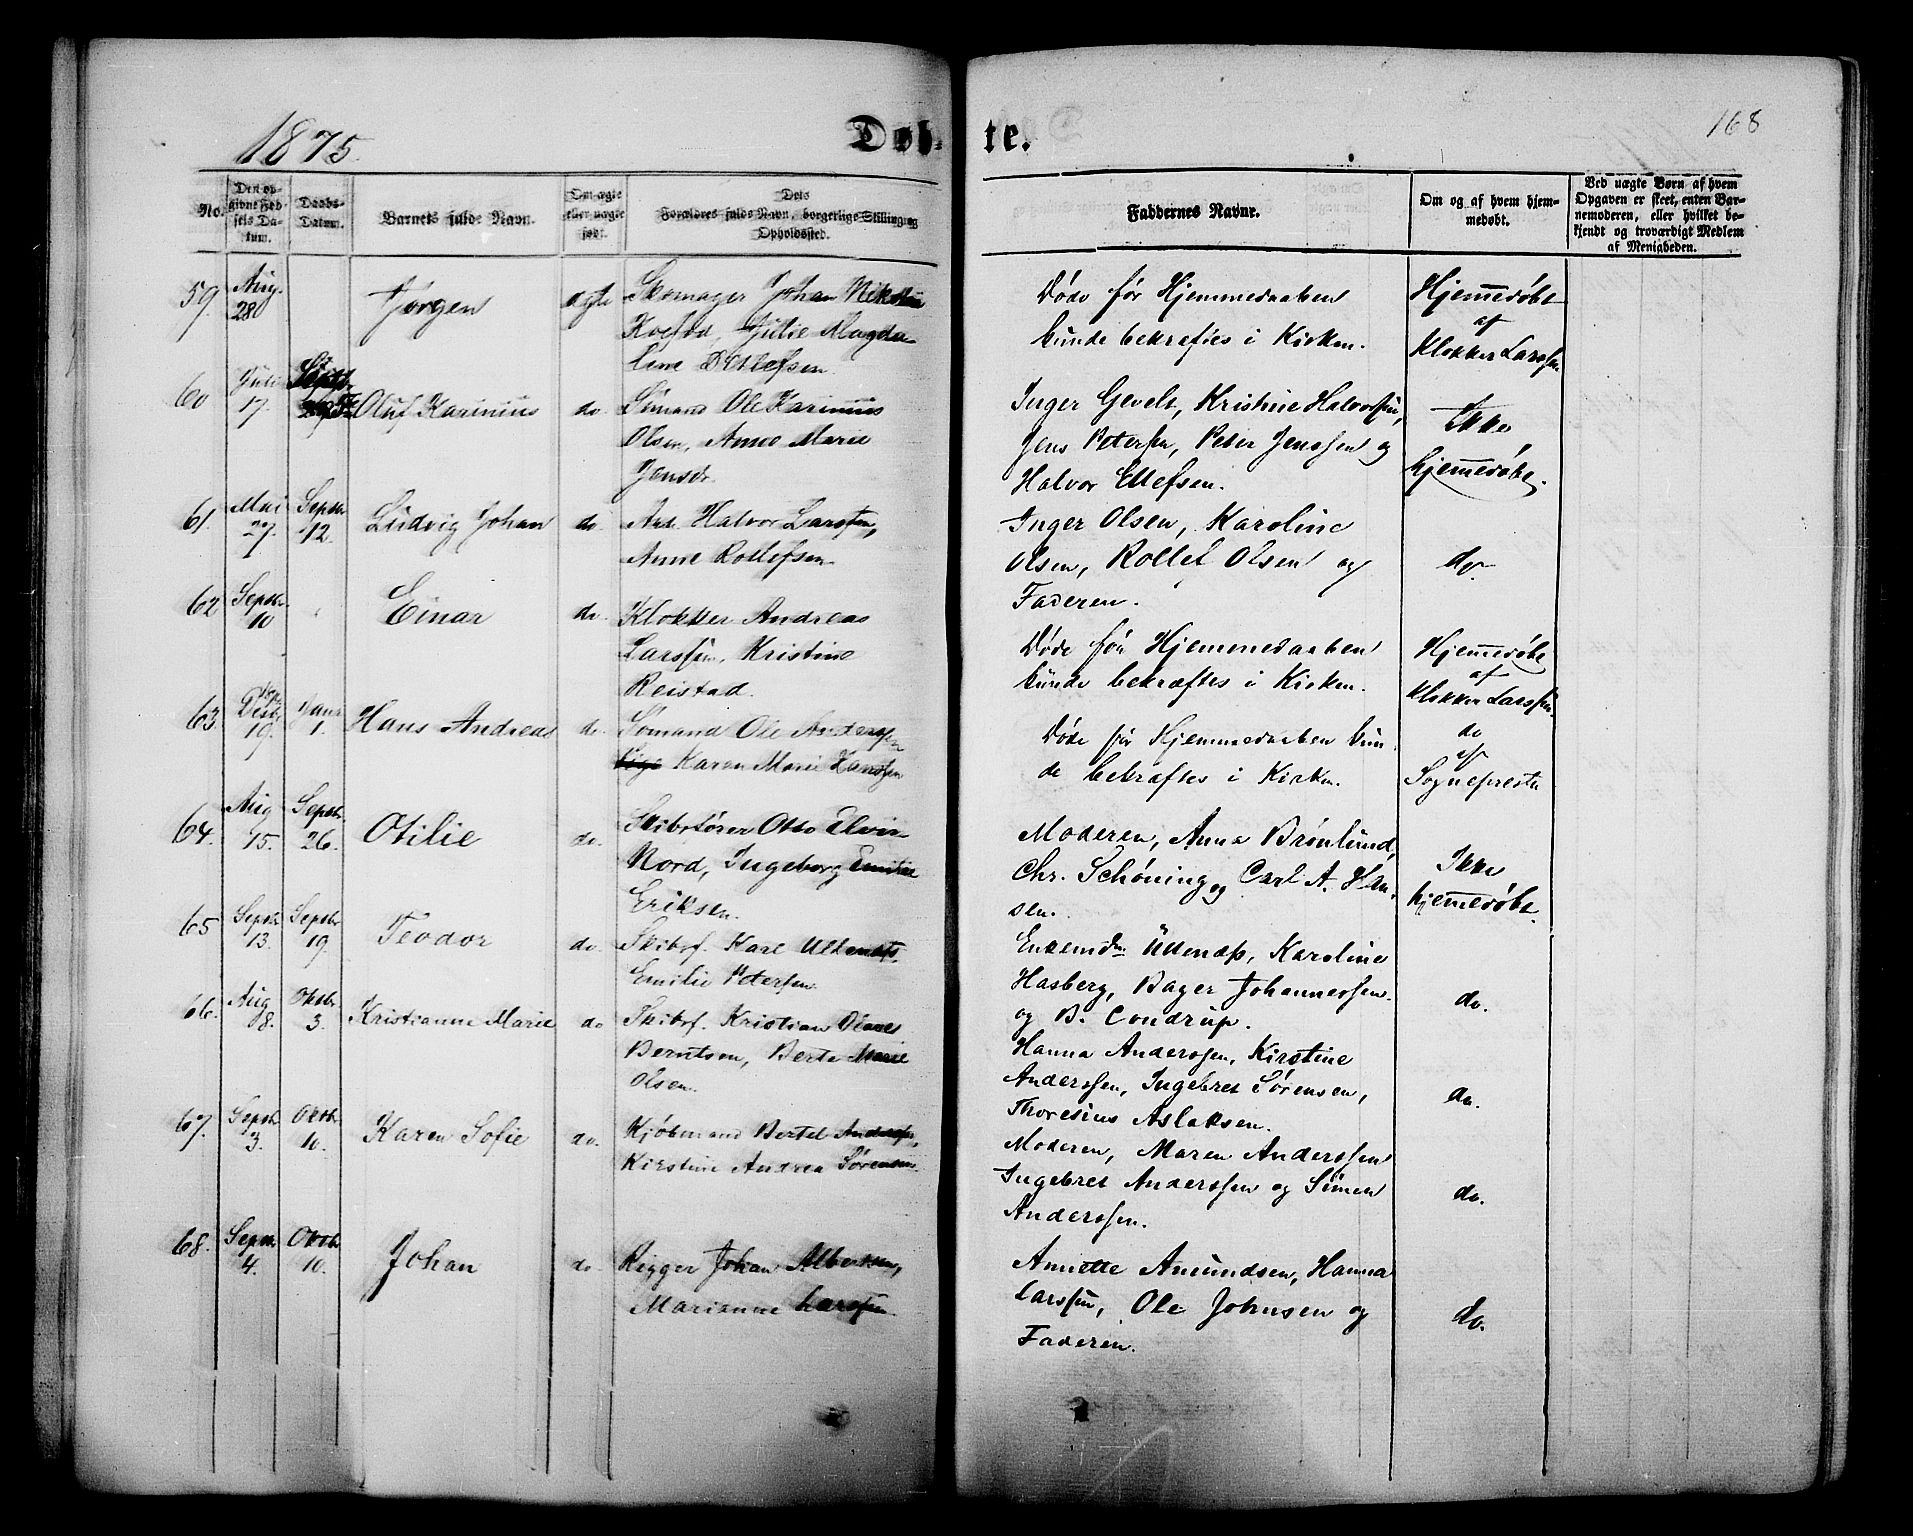 1875.
Døb-
te.
168
No.
Den opgivne Fødsels Datum.
Daabs-Datum.
Barnets fulde Navn.
Om ægte eller uægte født.
Dets Forældres fulde Navn, borgerlige Stilling og Opholdssted.
Faddernes Navne.
Om og af hvem hjemmedøbt.
Ved uægte Børn af hvem Opgaven er skeet, enten Barnemoderen, eller hvilket bekjendt og troværdigt Medlem af Menigheden.
59. Aug. 28 Jørgen ægte Skomager Johan Nikolai
Koefod, Julie Magda-
lene Detlefsen
Døde før Hjemmedaaben
kunde bekræftes i Kirken.
Hjemmedøbt
af
Klokker Larssen
60 Juli 17. Oluf Karinius do Sømand Ole Karinius
Olsen, Anne Marie
Jensdr.
Inger Gevelt, Kristine Halvorsen,
Jens Petersen, Peter Jenssen og
Halvor Ellefsen.
Ikke
hjemmedøbt.
61. Mai 27. Septbr 12. Ludvig Johan do Arb. Halvor Larssen,
Anne Rollefsen
Inger Olsen, Karoline
Olsen, Rollef Olsen og
Faderen.
do.
62 Septbr 10 Einar do. Klokker Andreas
Larssen, Kristine
Reistad.
Døde før Hjemmedaaben
kunde bekræftes i Kirken.
Hjemmedøbt
af
Klokker Larssen.
63. Desbr 19. Janr 1. Hans Andreas do. Sømand Ole Anderssen
Karen Marie Hanssen
Døde før Hjemmedaaben kun-
de bekræftes i Kirken.
do
af
Sognepresten
64. Aug 15. Septbr 26. Otilie do. Skibsfører Otto Elvin
Nord, Ingeborg Emilie
Eriksen.
Moderen, Anna Brønlund,
Chr. Schøning og Carl A. Han-
sen.
Ikke
hjemmedøbt.
65 Septbr 13. Septbr 19. Teodor do Skibsf. Karl
Emilie Petersen
Enkemdm Udenæss, Karoline
Hasberg, Bager Johannessen
og B. Condrup.
do.
66. Aug 8. Oktbr 3. Kristianne Marie do Skibsf. Kristian
Berntsen, Berte Marie
Olsen.
Hanna Anderssen, Kirstine
Anderssen, Ingebret Sørensen,
Thoresius Aslaksen.
do.
67. Septbr 3. Oktbr 10. Karen Sofie do. Kjøbmand Bertel Anderssen,
Kirstine Andrea Sørensen
Moderen, Maren Anderssen
Ingebret Anderssen og Simen
Anderssen.
do.
68. Septbr 4. Oktbr 10. Johan do. Rigger Johan Albertsen,
Marianne Larssen
Annette Amundsen, Hanna
Larssen, Ole Johnsen og
Faderen.
do.